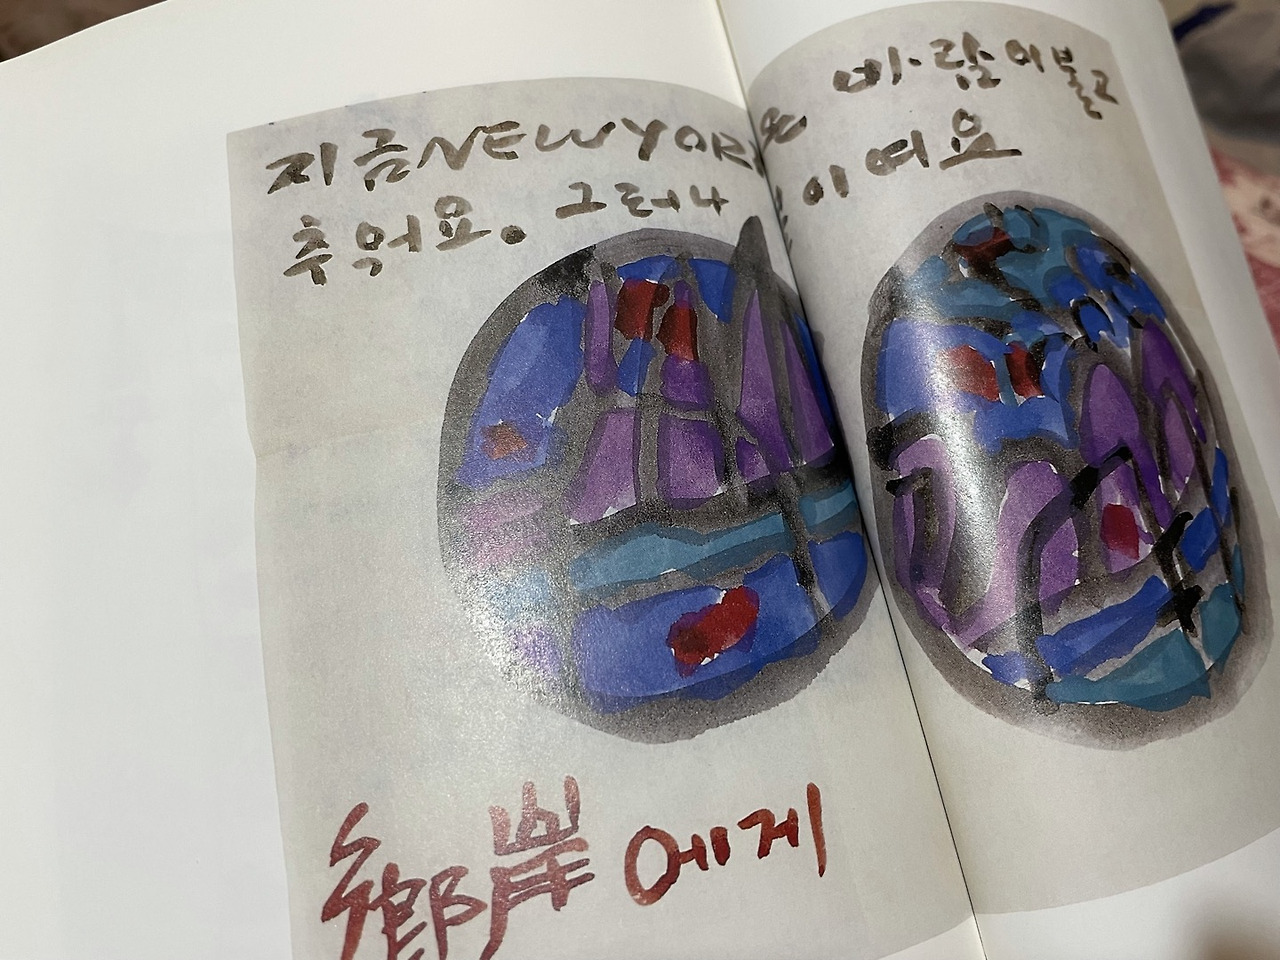 지금 NEWYORK 바람이불고
추워요. 그러나 이여요
鄕岸에게